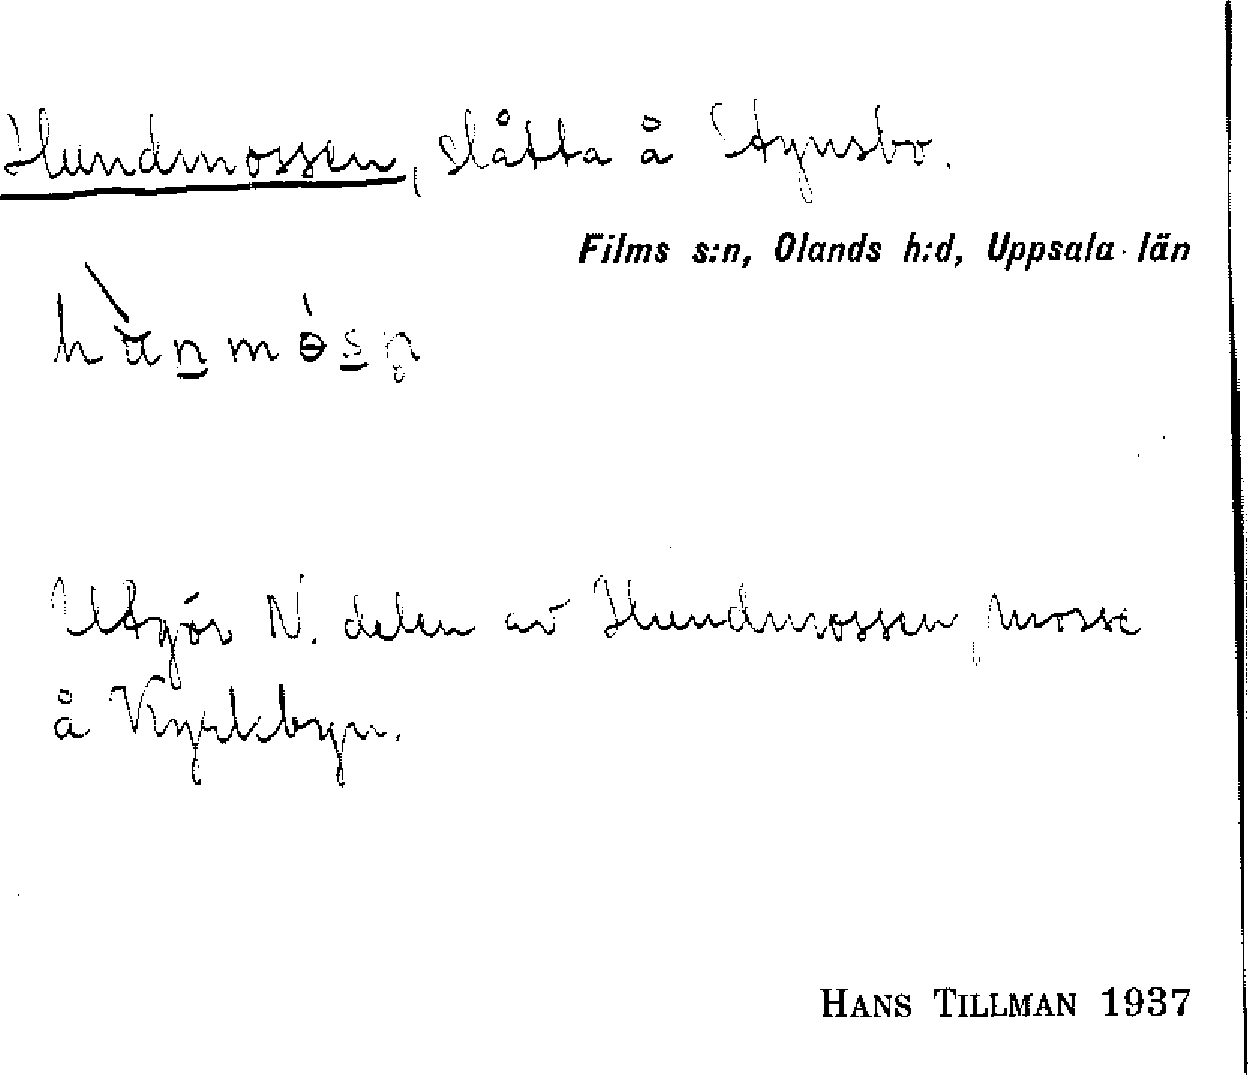 Hundmossen, slåtta å Agnsbo.
Films s:n, Olands h:d, Uppsala län
Utgör N. delen av Hundmossen, mosse
å Kyrkbyn.
HANS TILLMAN 1937